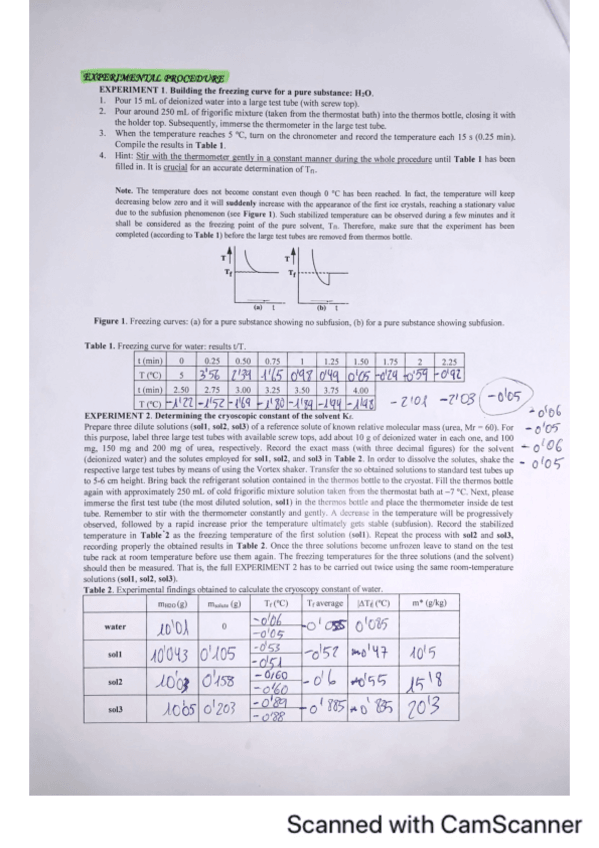 EXPERIMENTAL PROCEDURE
EXPERIMENT 1. Building the freezing curve for a pure substance: H₂O.
1. Pour 15 mL of deionized water into a large test tube (with screw top).
2. Pour around 250 mL of frigorific mixture (taken from the thermostat bath) into the thermos bottle, closing it with
the holder top. Subsequently, immerse the thermometer in the large test tube.
3. When the temperature reaches 5 ºC, turn on the chronometer and record the temperature each 15 s (0.25 min).
Compile the results in Table 1.
4. Hint: Stir with the thermometer gently in a constant manner during the whole procedure until Table 1 has been
filled in. It is crucial for an accurate determination of
Note. The temperature does not become constant even though 0 ºC has been reached. In fact, the temperature will keep
decreasing below zero and it will suddenly increase with the appearance of the first ice crystals, reaching a stationary value
due to the subfusion phenomenon (see Figure 1). Such stabilized temperature can be observed during a few minutes and it
shall be considered as the freezing point of the pure solvent, Therefore, make sure that the experiment has been
completed (according to Table 1) before the large test tubes are removed from thermos bottle.
T Tf (a) t
T Tf (b) t
Figure 1. Freezing curves: (a) for a pure substance showing no subfusion, (b) for a pure substance showing subfusion.
Table 1. Freezing curve for water: results t/T.
t (min) 0 0.25 0.50 0.75 1 1.25 1.50 1.75 2 2.25
T (ºC) 5 3'56 1'65 0'98 0'49 0'05 -0'29 -0'59 -0'92
t (min) 2.50 2.75 3.00 3.25 3.50 3.75 4.00
T (ºC) -1'22 -1'52 -1'69 -1'80 -1'89 -1'94 -1'98 -2'01 -2'03 -0'05
-0'06
-0'05
-0'06
-0'05
EXPERIMENT 2. Determining the cryoscopic constant of the solvent
Prepare three dilute solutions (sol1, sol2, sol3) of a reference solute of known relative molecular mass (urea, Mr = 60). For
this purpose, label three large test tubes with available screw tops, add about 10 g of deionized water in each one, and 100
mg, 150 mg and 200 mg of urea, respectively. Record the exact mass (with three decimal figures) for the solvent
(deionized water) and the solutes employed for sol1, sol2, and sol3 in Table 2. In order to dissolve the solutes, shake the
respective large test tubes by means of using the Vortex shaker. Transfer the so obtained solutions to standard test tubes up
to 5-6 cm height. Bring back the refrigerant solution contained in the thermos bottle to the cryostat. Fill the thermos bottle
again with approximately 250 mL of cold frigorific mixture solution taken from the thermostat bath at −7 ºC. Next, please
immerse the first test tube (the most diluted solution, sol1) in the thermos bottle and place the thermometer inside de test
tube. Remember to stir with the thermometer constantly and gently. A decrease in the temperature will be progressively
observed, followed by a rapid increase prior the temperature ultimately gets stable (subfusion). Record the stabilized
temperature in Table 2 as the freezing temperature of the first solution (sol1). Repeat the process with sol2 and sol3,
recording properly the obtained results in Table 2. Once the three solutions become unfrozen leave to stand on the test
tube rack at room temperature before use them again. The freezing temperatures for the three solutions (and the solvent)
should then be measured. That is, the full EXPERIMENT 2 has to be carried out twice using the same room-temperature
solutions (sol1, sol2, sol3).
Table 2. Experimental findings obtained to calculate the cryoscopy constant of water.
mH2O (g) msolute (g) Tf (ºC) Tf average |ΔTf| (ºC) m* (g/kg)
water 10'01 0 -0'06 -0'05 0'085
sol1 10'043 0'105 -0'53 -0'51 -0'52 0'47 10'5
sol2 0'158 -0'60 -0'60 -0'6 0'55 15'8
sol3 0'203 -0'89 -0'88 -0'885 20'3
Scanned with CamScanner